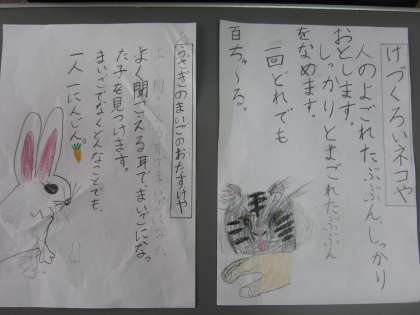 けづくろいネコや
人のよごれたぶぶん、しっかり
おとします。
しっかりとまごれたぶぶん
をなめます。
一回どれでも
百ちゃ～る。
うさぎのまいごのおたすけや
よく聞こえる耳で、まいごにな。
た子を見つけます。
まいごでなくどんなことでも、
一人一にんじん。